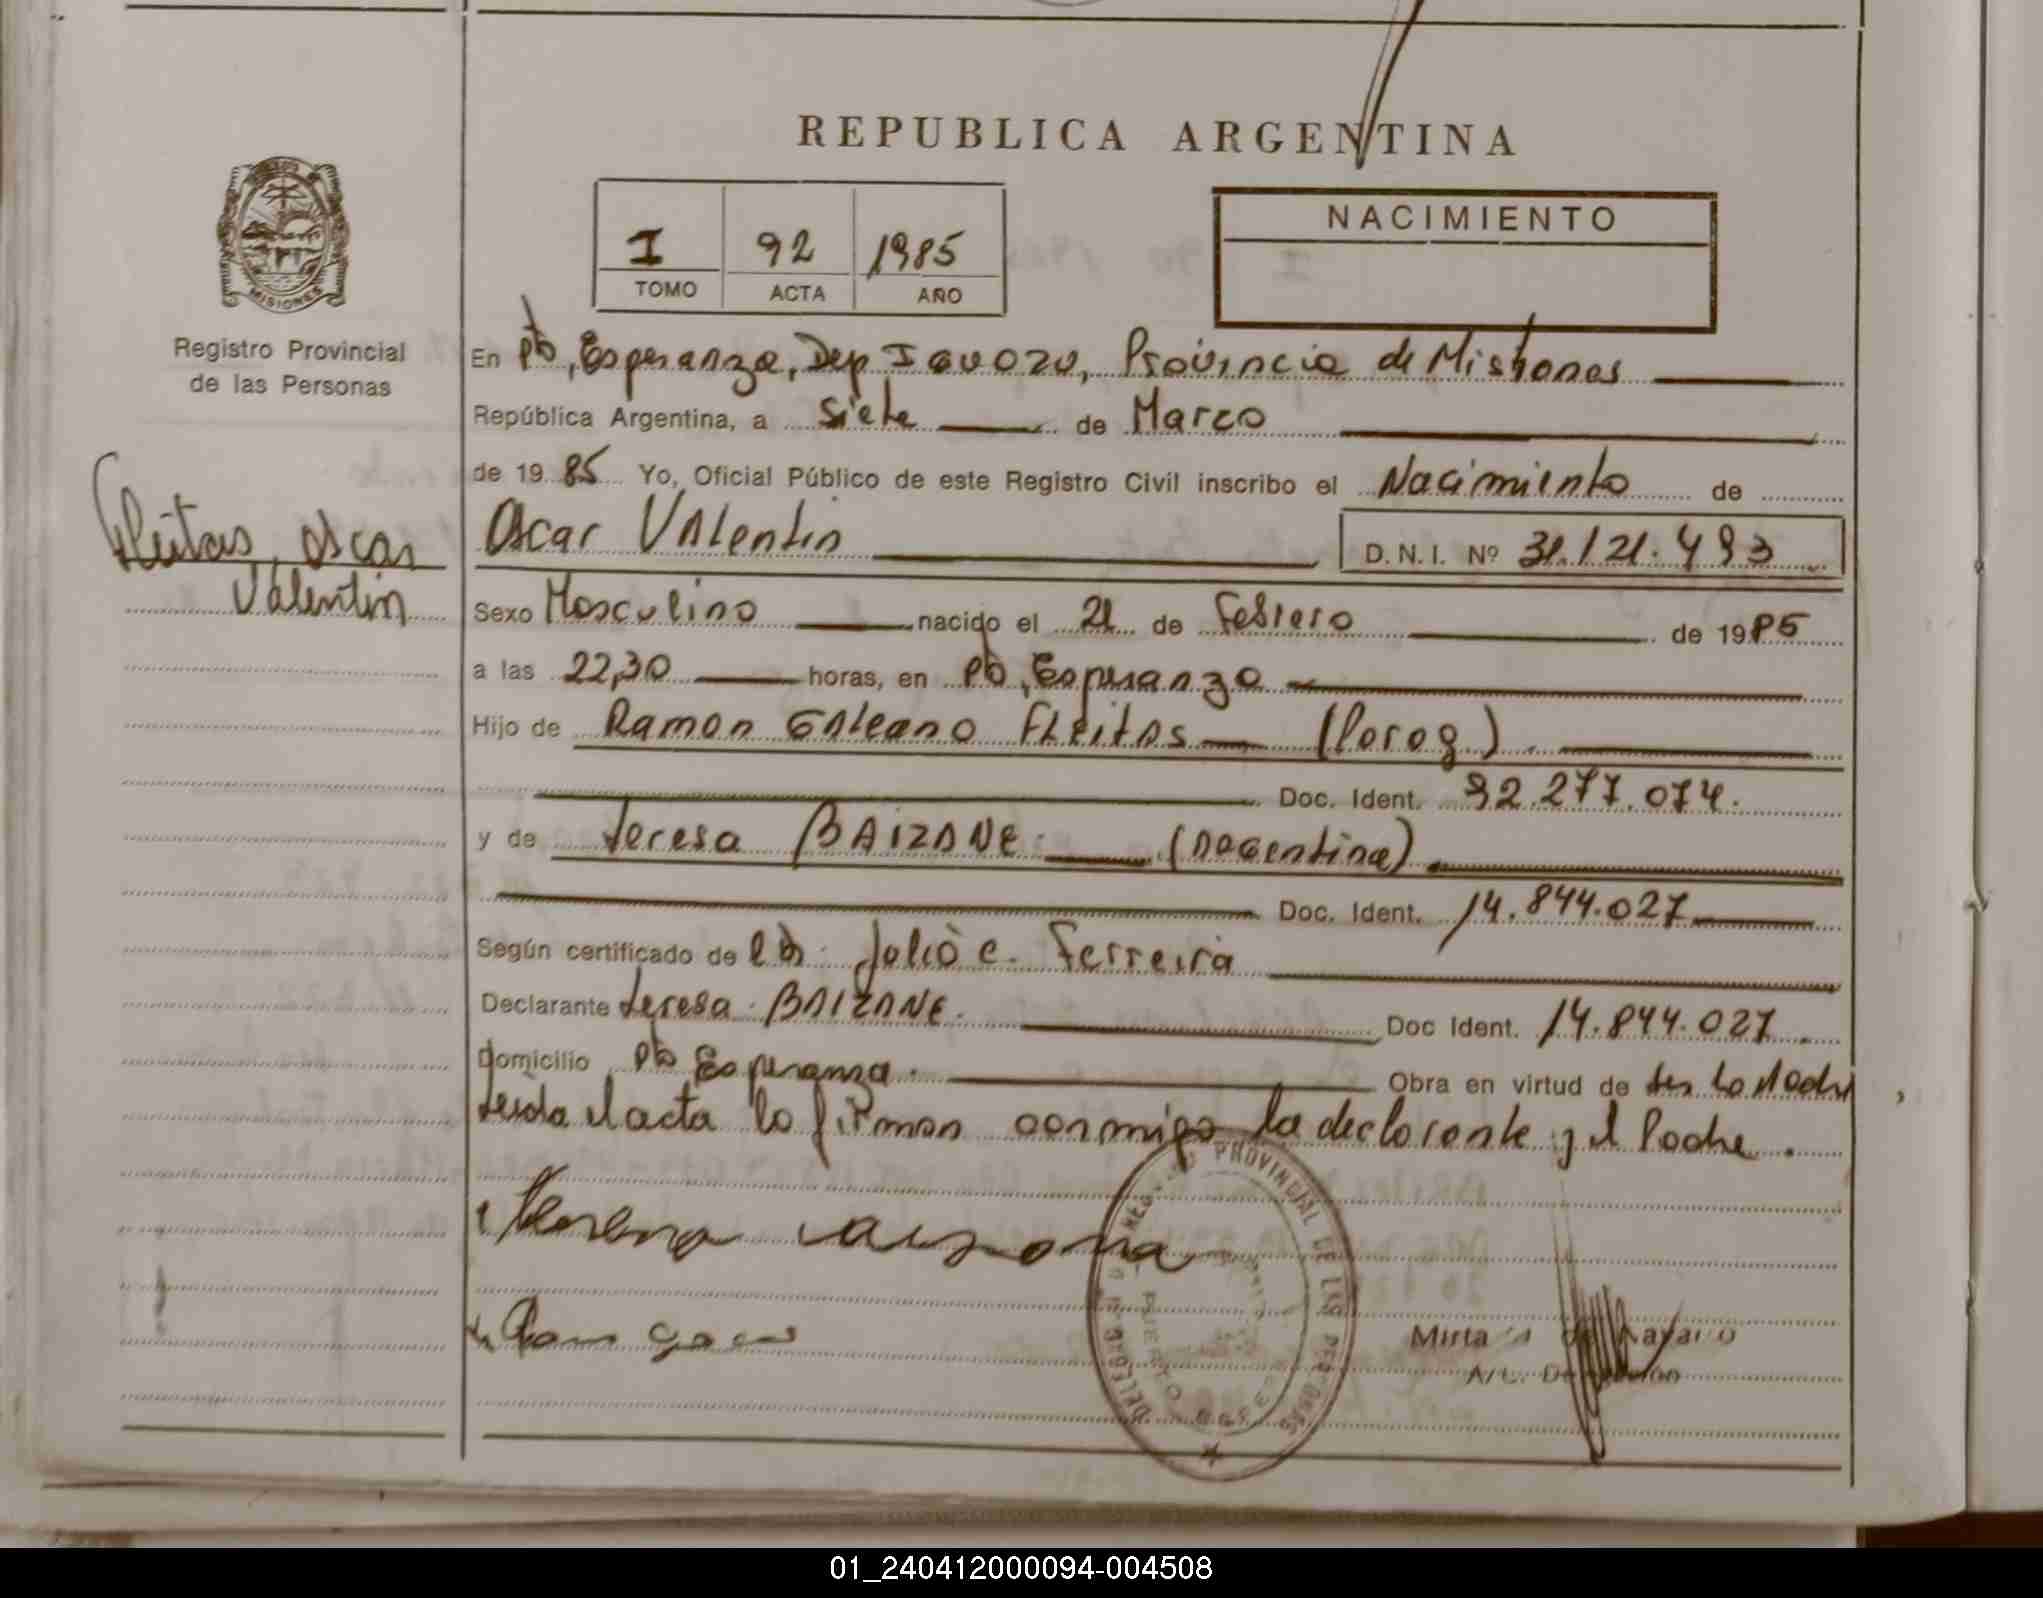 REPUBLICA ARGENTINA
MISIONES
Registro Provincial
de las Personas
I 92 1985
TOMO ACTA AÑO
NACIMIENTO
En Pto, Esperanza, Dep Iguazu, Provincia de Misiones
República Argentina, a siete de Marzo
de 1985 Yo, Oficial Público de este Registro Civil inscribo el Nacimiento de
Fleitas, Oscar
Valentin
Oscar Valentin
D.N.I. Nº 31.121.493
Sexo Masculino nacido el 21 de Febrero de 1985
a las 22,30 horas, en Pto, Esperanza
Hijo de Ramon Galeano Fleitas (Parag.)
Doc. Ident. 92.277.074.
y de Teresa BAIZANE (Argentina)
Doc. Ident. 14.844.027
Según certificado de Julio C. Ferreira
Declarante Teresa BAIZANE. Doc Ident. 14.844.027
Domicilio Pto Esperanza. Obra en virtud de ser la Madre
Leida el acta la firman conmigo la declarante y el Padre.
REGISTRO PROVINCIAL DE LAS PERSONAS
DELEGACION
PUERTO ESPERANZA
Mirta de
01_240412000094-004508